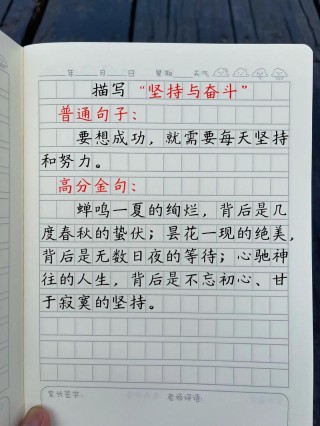 年 月 日 星期 天气
描写“坚持与奋斗”
普通句子：
要想成功，就需要每天坚持
和努力。
高分金句：
蝉鸣一夏的绚烂，背后是几
度春秋的蛰伏；昙花一现的绝美，
背后是无数日夜的等待；心驰神
往的人生，背后是不忘初心、甘
于寂寞的坚持。
家长签字：
老师评语：